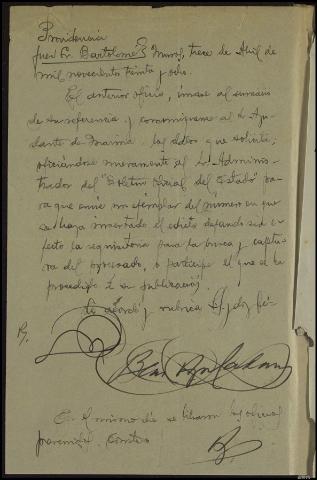 Providencia
Juez Sr. Bartolomé} Muros, trece de Abril de
mil novecientos treinta y ocho.
El anterior oficio, únase al sumario
de su referencia y comuníquese al Sr. Ayu
dante de Marina los datos que solicita;
oficiándose nuevamente al Sr. Adminis-
trador del "Boletín Oficial del Estado" pa-
ra que envíe un ejemplar del número en que
se haya insertado el edicto dejando sin e-
fecto la requisitoria para la busca y captu-
ra del procesado, o participe el que se ha
procedido a su publicación.
Lo acordó y rubrica S.Sª doy fé.
En el mismo día se libraron los oficios
prevenidos.